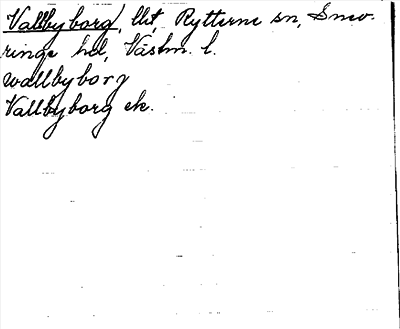 Vallbyborg, llt, Rytterne sn, Snev-
ringe hd, Västm. l.
wallbyborg
Vallbyborg ek.